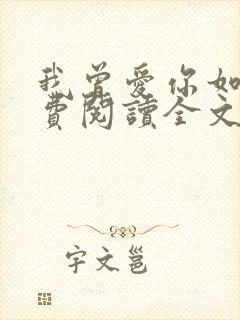 我曾爱你如
費閱讀全文
宇文邕